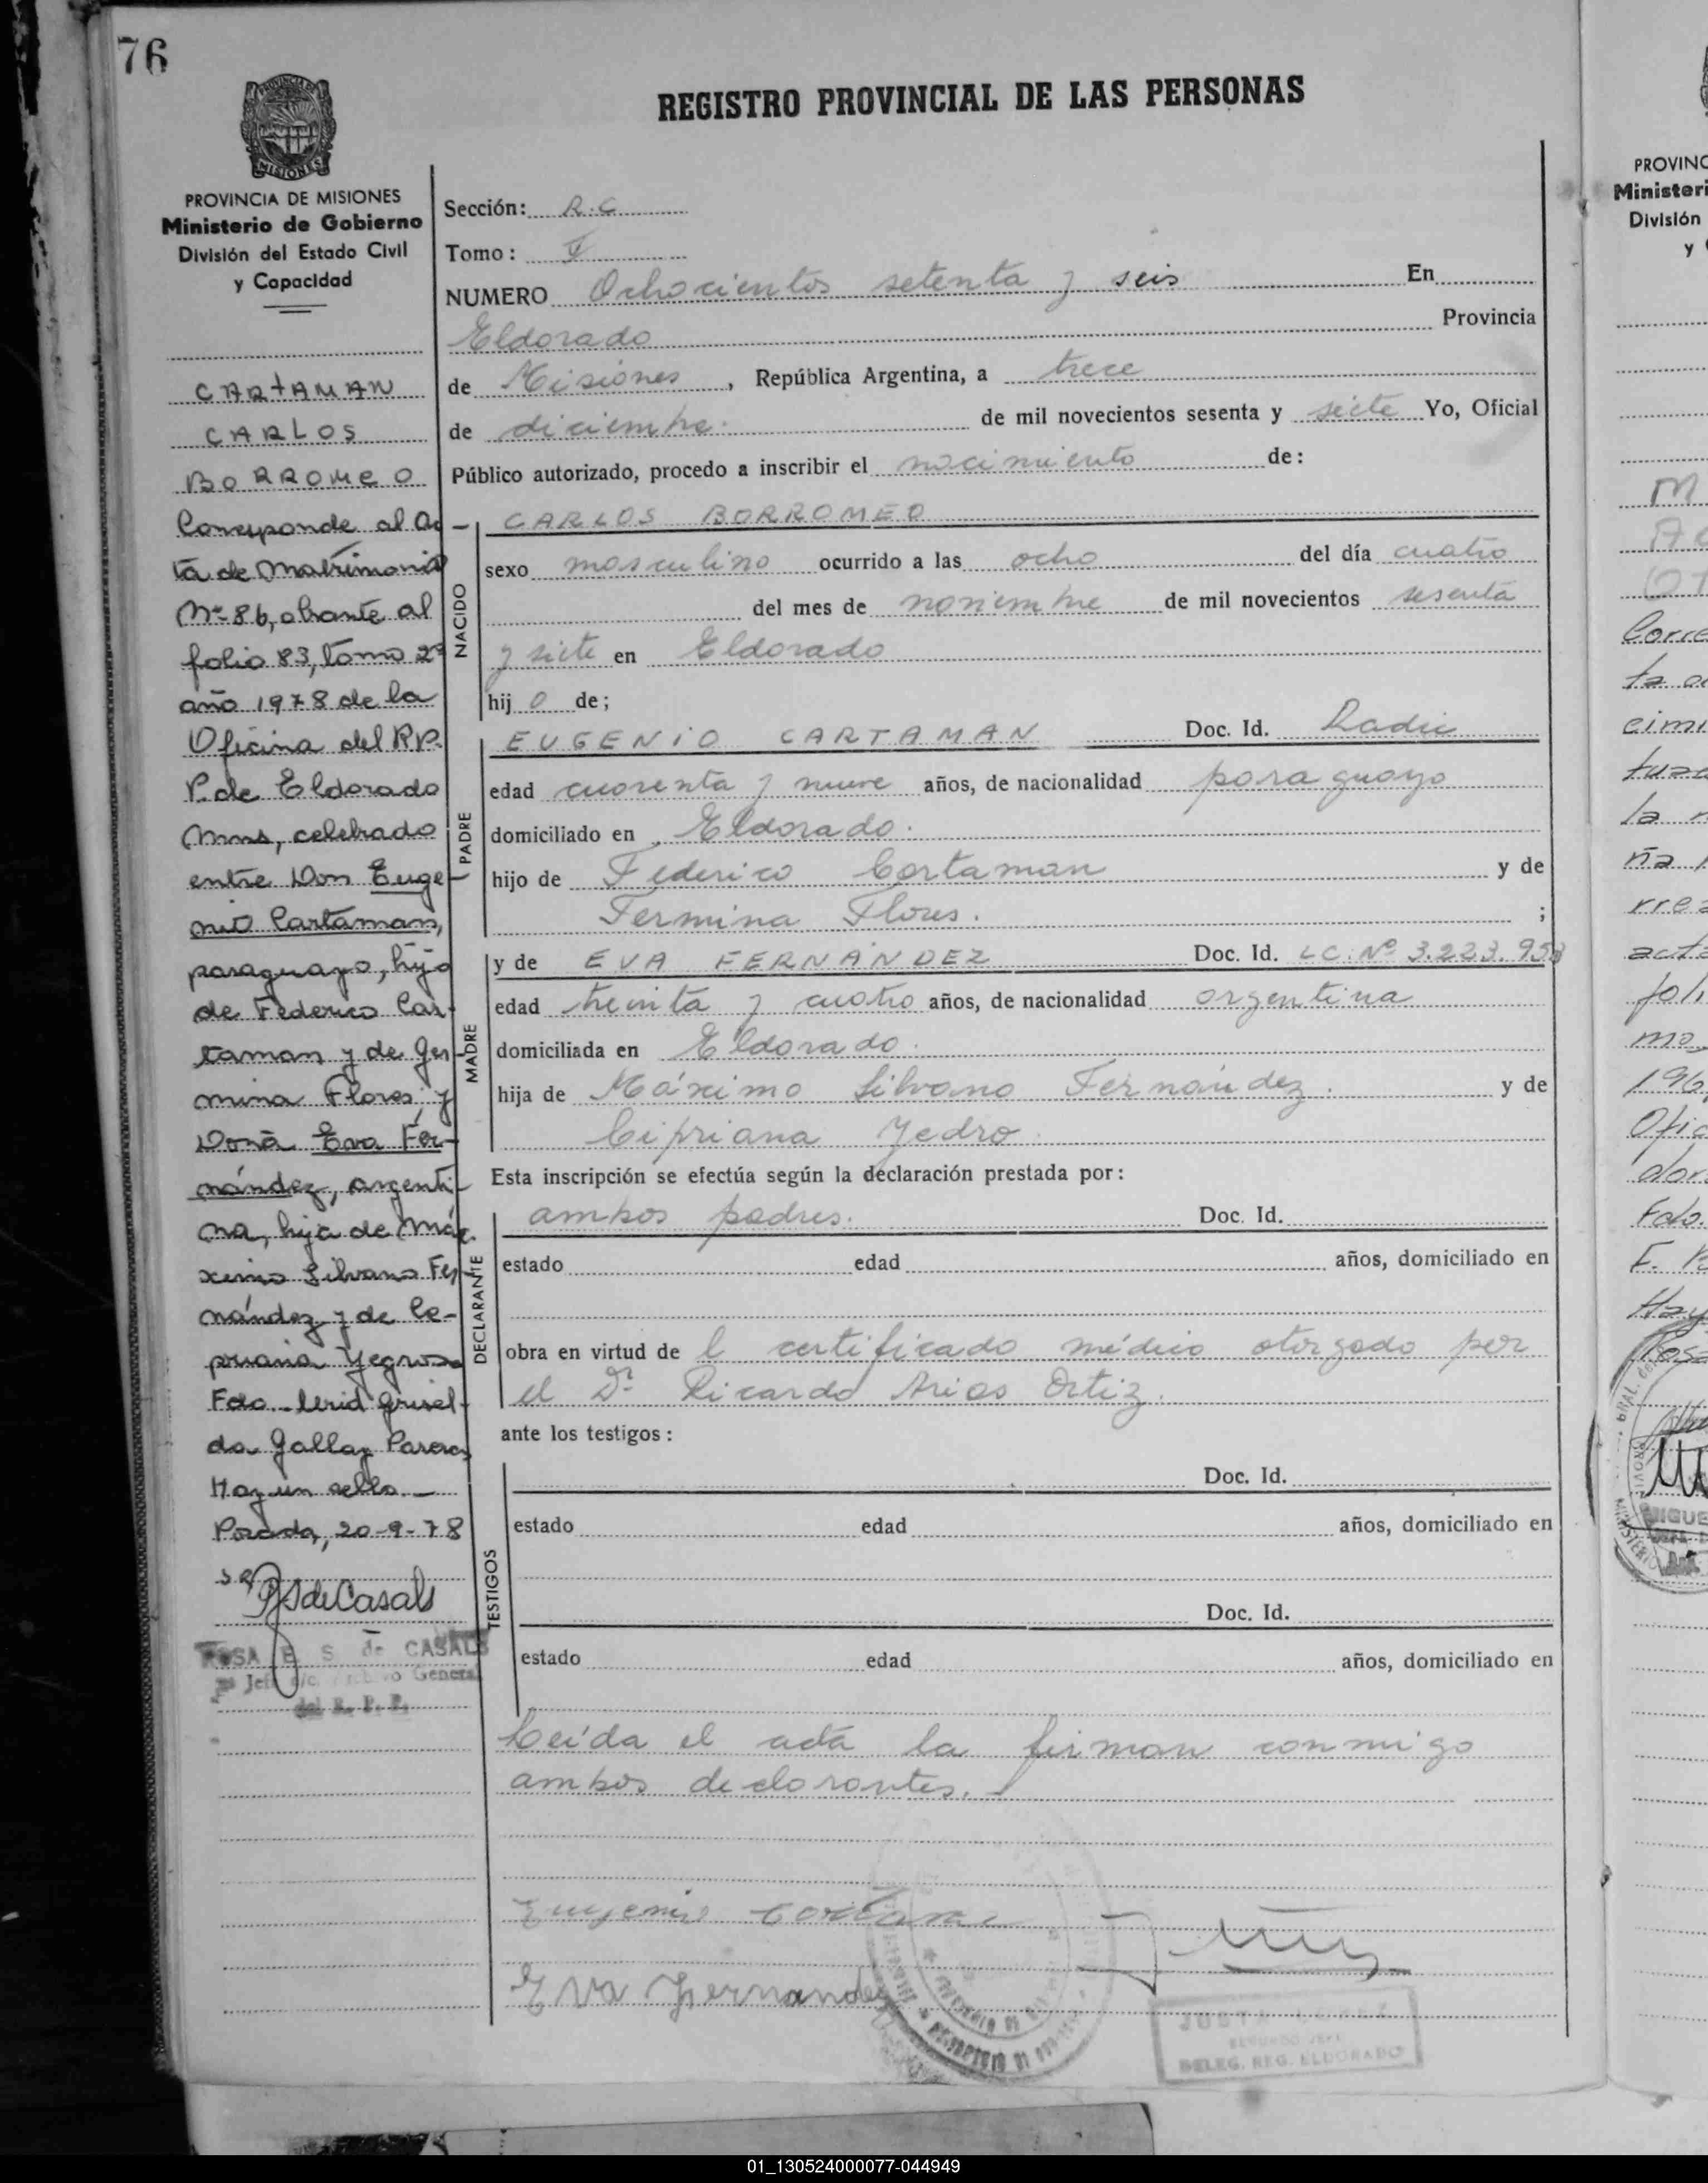 76
REGISTRO PROVINCIAL DE LAS PERSONAS
MISIONES
PROVINCIA DE MISIONES
Ministerio de Gobierno
División del Estado Civil
y Capacidad
CARTAMAN
CARLOS
BORROMEO
Corresponde al Ac-
ta de Matrimonio
Nº 86, obrante al
folio 83, tomo 2º
año 1978 de la
Oficina del R.P.
P. de Eldorado
Mnes, celebrado
entre Don Euge-
nio Cartaman,
paraguayo, hijo
de Federico Car-
taman y de Ger-
mina Flores y
Doña Eva Fer-
nández, argenti-
na, hija de Má-
ximo Silvano Fer-
nández y de Ce-
priana Yegros
Fdo. Grisel-
da Gallaz Pareras
Hay un sello.
Posadas, 20-9-78
ROSA E. S. de CASALS
Jefe a/c. Archivo General
del R. P. P.
Sección: R.C
Tomo: I
NUMERO Ochocientos setenta y seis En
Eldorado Provincia
de Misiones, República Argentina, a trece
de diciembre. de mil novecientos sesenta y siete Yo, Oficial
Público autorizado, procedo a inscribir el nacimiento de:
NACIDO
CARLOS BORROMEO
sexo masculino ocurrido a las ocho del día cuatro
del mes de noviembre de mil novecientos sesenta
y siete en Eldorado
hij o de;
PADRE
EUGENIO CARTAMAN Doc. Id. Radic
edad cuarenta y nueve años, de nacionalidad paraguayo
domiciliado en Eldorado.
hijo de Federico Cartaman y de
Fermina Flores. ;
MADRE
y de EVA FERNÁNDEZ Doc. Id. LC. Nº 3.223.953
edad treinta y cuatro años, de nacionalidad argentina
domiciliada en Eldorado.
hija de Máximo Silvano Fernández. y de
Cipriana Yedro.
Esta inscripción se efectúa según la declaración prestada por:
DECLARANTE
ambos padres. Doc. Id.
estado edad años, domiciliado en
obra en virtud de l certificado médico otorgado por
el Dr. Ricardo Arias Ortiz.
ante los testigos:
TESTIGOS
Doc. Id.
estado edad años, domiciliado en
Doc. Id.
estado edad años, domiciliado en
Leída el acta la firman conmigo
ambos declarantes.
Eugenio Cartaman
Eva Fernandez
DELEG. REG. ELDORADO
01_130524000077-044949